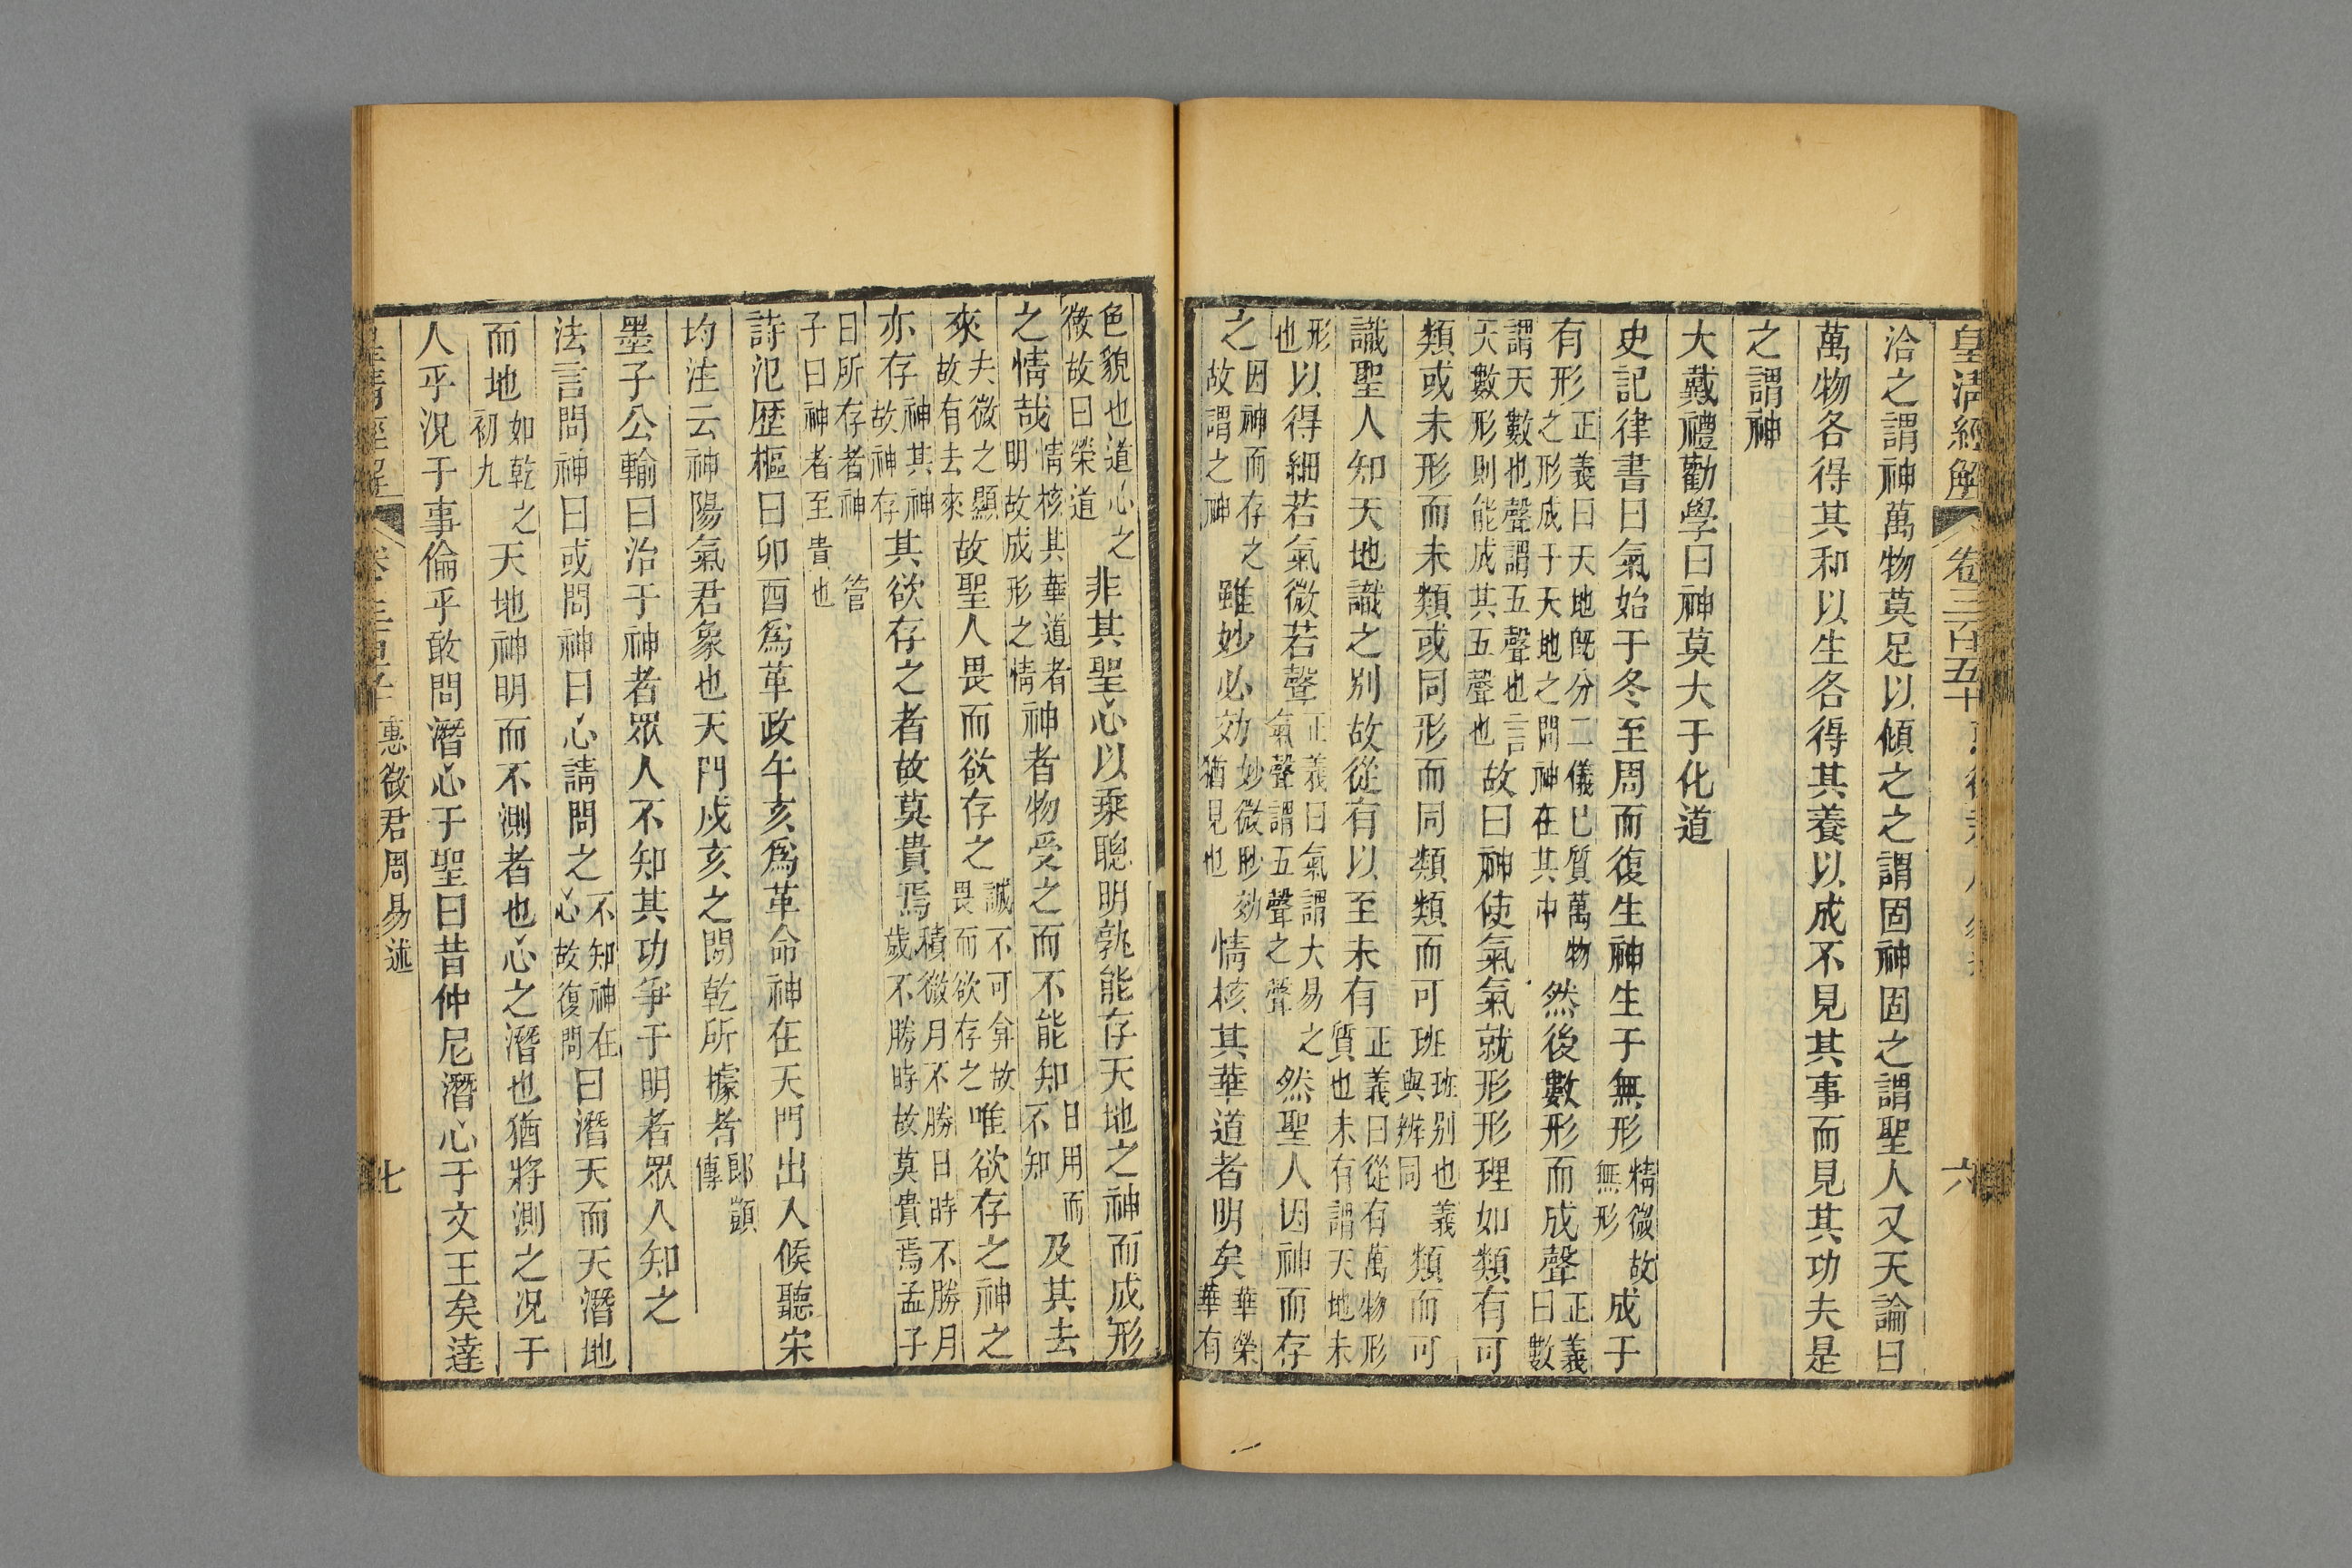 皇清經解 卷三百五十 六
洽之謂神萬物莫足以傾之之謂固神固之謂聖人又天論曰
萬物各得其和以生各得其養以成不見其事而見其功夫是
之謂神
大戴禮勸學曰神莫大于化道
史記律書曰氣始于冬至周而復生神生于無形精微故無形成于
有形正義曰天地旣分二儀巳質萬物之形成于天地之間神在其中然後數形而成聲正義曰數
謂天數也聲謂五聲也言天數形則能成其五聲也故曰神使氣氣就形形理如類有可
類或未形而未類或同形而同類類而可班班别也義與辨同類而可
識聖人知天地識之别故從有以至未有正義曰從有萬物形質也未有謂天地未
形也以得細若氣微若聲正義曰氣謂大易之氣聲謂五聲之聲然聖人因神而存
之因神而存之故謂之神雖妙必効妙微眇効猶見也情核其華道者明矣華榮華有
色貌也道心之微故曰榮道非其聖心以乘聰明孰能存天地之神而成形
之情哉情核其華道者明故成形之情神者物受之而不能知日用而不知及其去
來夫微之顯故有去來故聖人畏而欲存之誠不可弇故畏而欲存之唯欲存之神之
亦存神其神故神存其欲存之者故莫貴焉積微月不勝日時不勝月歲不勝時故莫貴焉孟子
曰所存者神管子曰神者至貴也
詩汜歷樞曰卯酉爲革政午亥爲革命神在天門出入候聽宋
均注云神陽氣君象也天門戍亥之間乾所據者郎顗傳
墨子公輸曰治于神者眾人不知其功爭于明者眾人知之
法言問神曰或問神曰心請問之不知神在心故復問曰潛天而天潛地
而地如乾之初九天地神明而不測者也心之潛也猶將測之况于
人乎况于事倫乎敢問潛心于聖曰昔仲尼潛心于文王矣達
皇清經解 惠徵君周易述 七